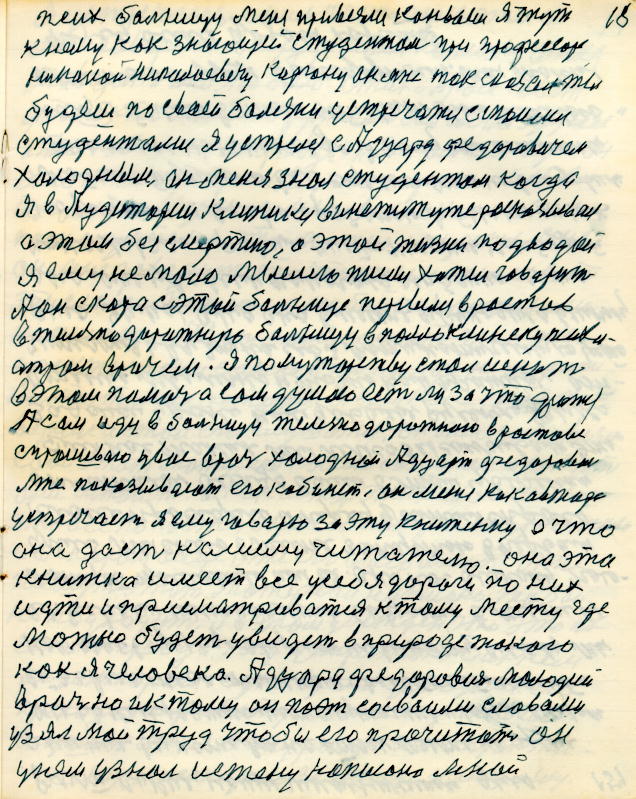 18
псих больницу мени привезли конваем я тут
к нему как знающей студентам при професоре
он мне так сказал ты
будеш по своей болезни устречатся с моими
студентами я устрелся с Адуард федоровичем
холодным, он меня знал студентом когда
я в Аудитории Клиники в институте россказывал
о этом безсмертию, о этой жизни под водой
я ему не мало мыслию писал хотел говорит
А он скора с этой больнице перешел в ростов
в железнодорожную больницу в полеклинеку псих-
атром врачем. Я по мужеству стал искать
в этом помоч а сам думаю есть ли за что
А сам иду в больницу железнодорожною в ростове
спрошиваю у вас врач холодной Адуарт федорович
мне показывают его кабинет, он меня как автора
устречает я ему говарю за эту книженку о что
она даст нашему читателю. она эта
книжка имеет все у себя дороги по них
идти и присматриватся к тому месту где
можно будет увидет в природе такого
как я человека. Адуард федоровия молодый
врач но и к тому он поэт со своими словами
узял мой труд чтобы его прочитать он
у нем узнал истену написано мной